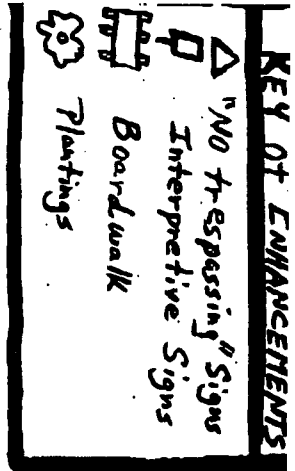 KEY OF ENHANCEMENTS
"No trespassing" Signs
Interpretive Signs
Boardwalk
Plantings